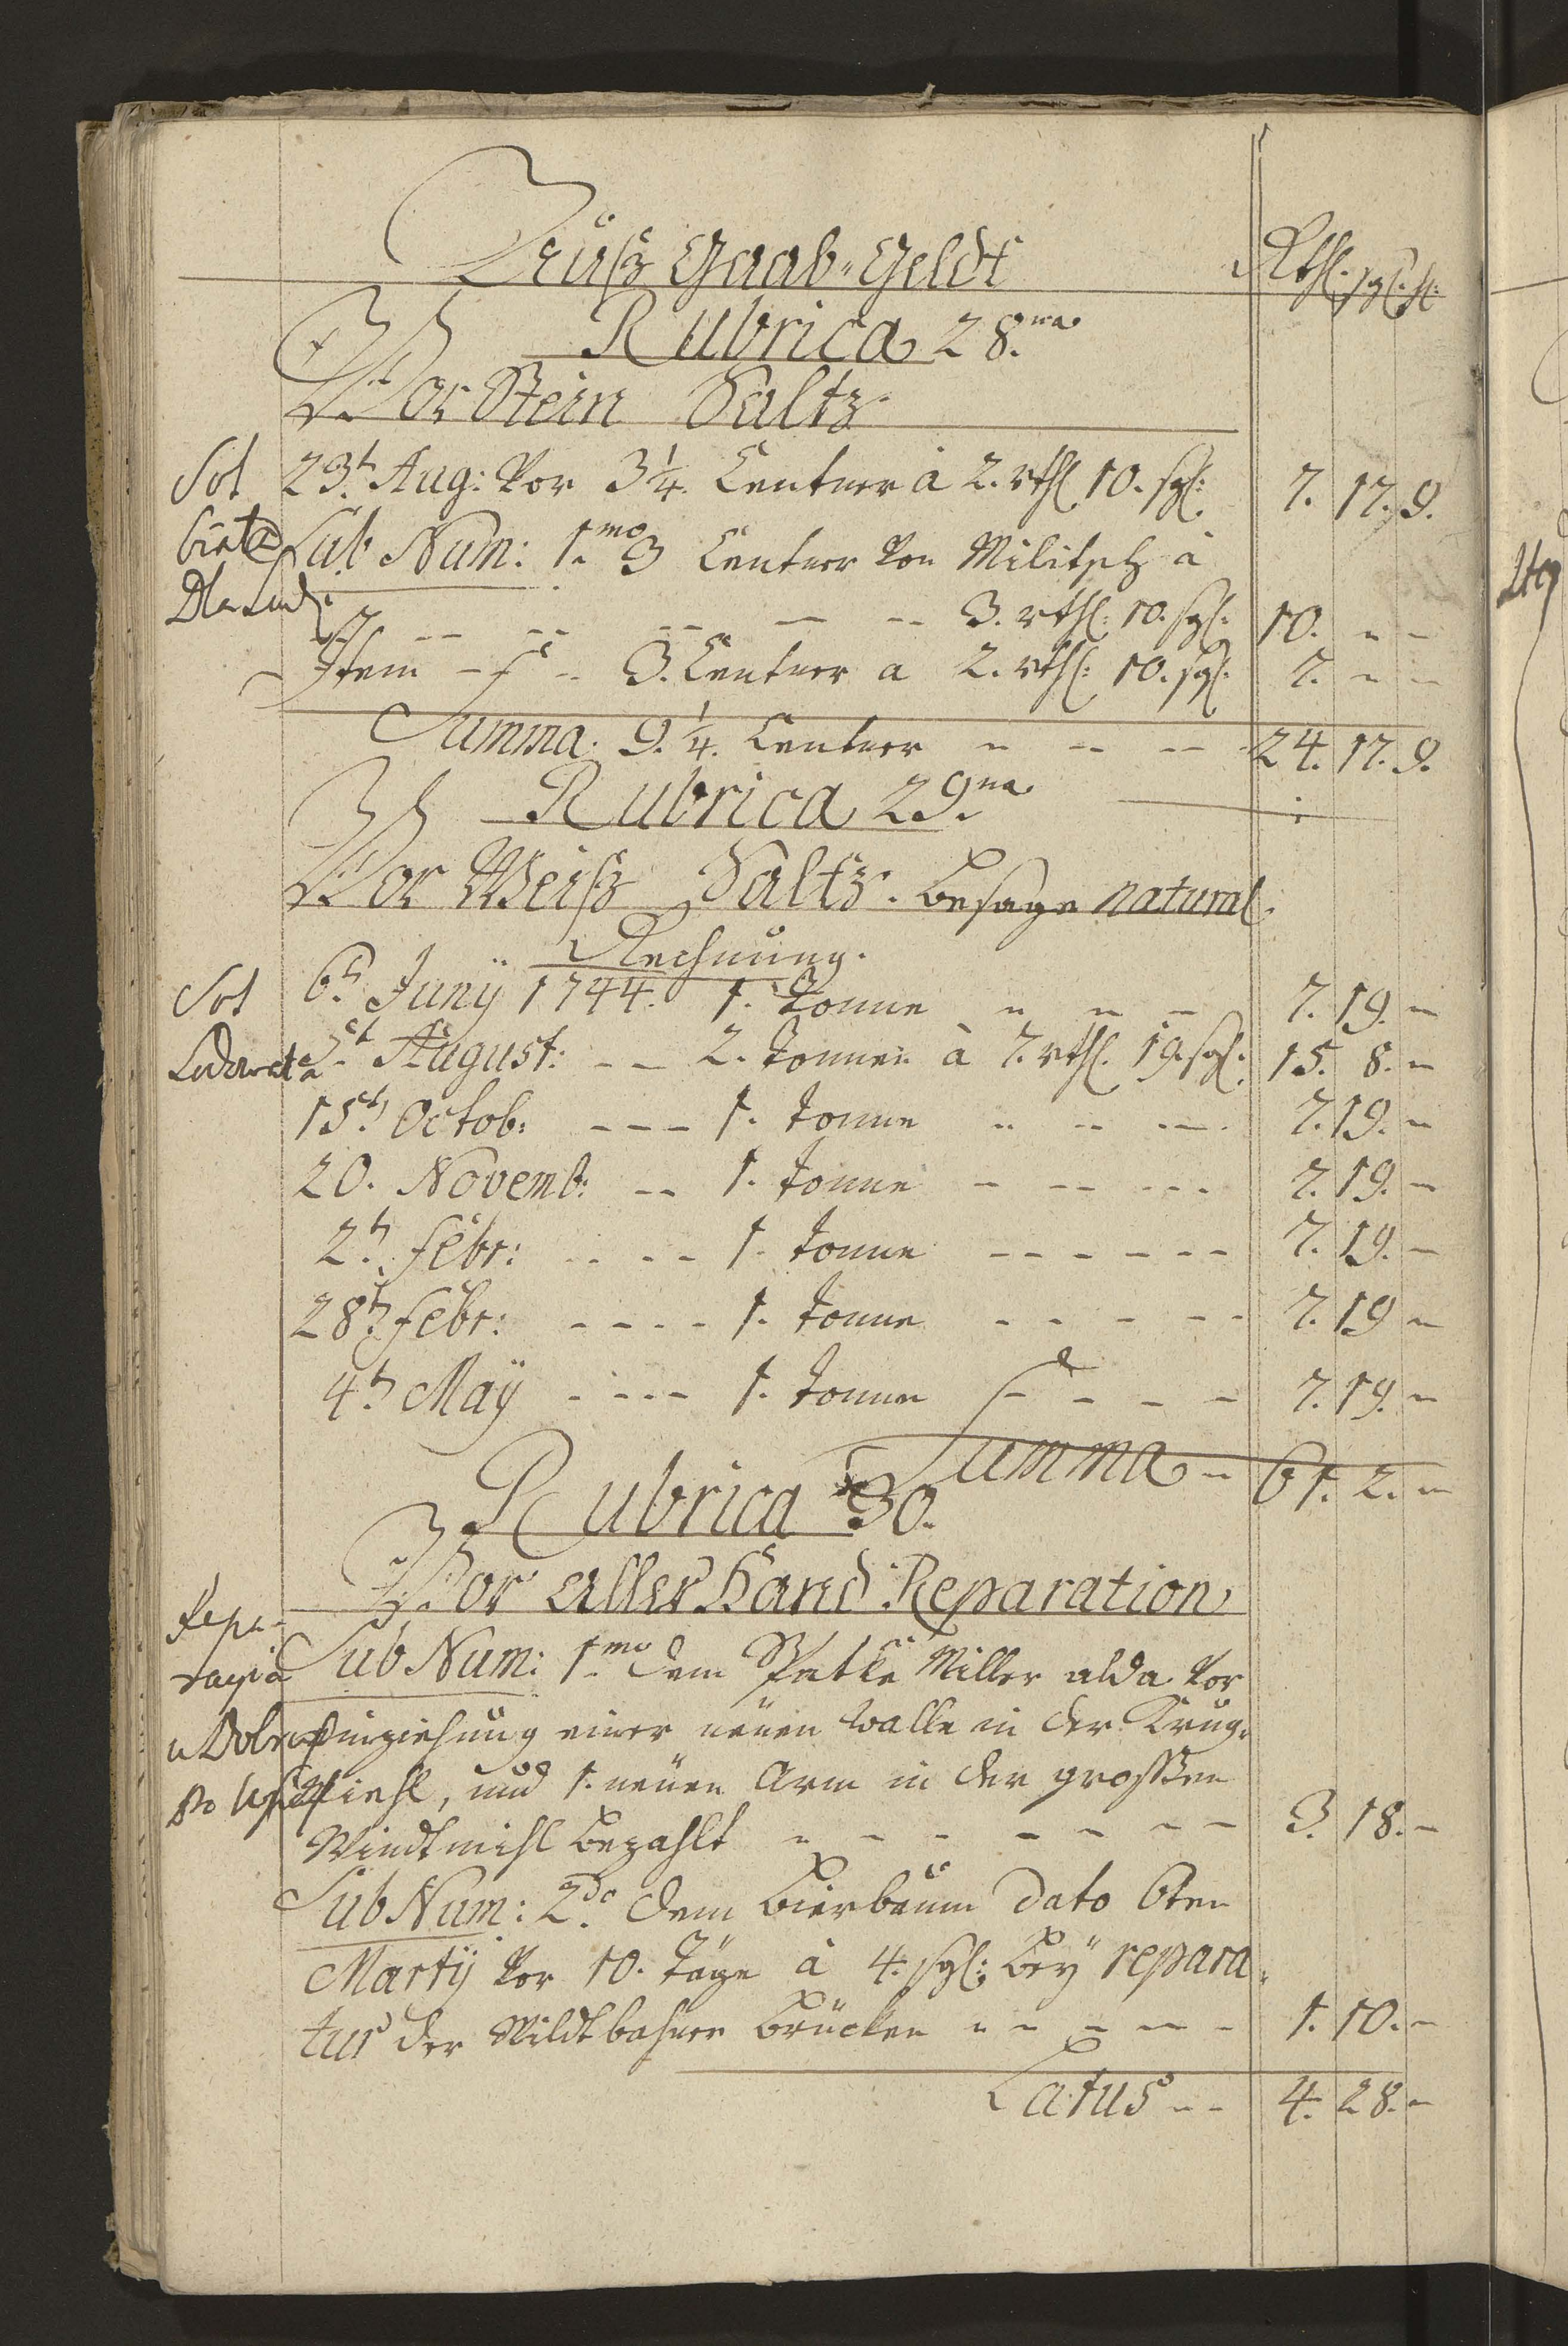 Außgaab-Geldt Rthl. sgl. hl.
Rubrica 28.na
Vor Stein Saltz
Sol 23.t Aug: Vor 3 1/4. Centner à 2. rthl. 10. sgl: 7. 17. 9.
Sub Num: 1.mo 3 Centner von Militsch à
Dla
3. rthl: 10. sgl: 10. - -
Item - - 3. Centner a 2. rthl: 10. sgl: 7. - -
Summa. 9. 1/4. Centner - - - 24. 17. 9.
Rubrica 29.na
Vor Weiß Saltz. besage natural
Rechnung.
Sol 6.t Junÿ 1744. 1. Tonne - - - 7. 19. -
August: - - 2. Tonnen à 7. rthl. 19. sgl: 15. 8. -
15.t Octob: - - - 1. Tonne - - - 7. 19. -
20. Novemb: - - 1. Tonne - - - 7. 19. -
2.t Febr: - - - - 1. Tonne - - - - - - 7. 19. -
28.t Febr: - - - - 1. Tonne - - - - - 7. 19 -
4.t Maÿ - - - - 1. Tonne - - - - 7. 19. -
Summa - 61. 2. -
Rubrica 30.
Vor allerhand Reparation
Repa-
racyia Sub Num: 1.mo dem Miller alda vor
Einziehung einer neüen Walle in der
und 1. neüen Arm in der grossen
Windtmihl bezahlt - - - - - - - 3. 18. -
Sub Num: 2.do dem Bierbaum dato 6ten
Martÿ vor 10. Täge à 4. sgl: beÿ repara-
tur der Wildtbahner Brücken - - - - - 1. 10. -
Latus - - 4. 28. -